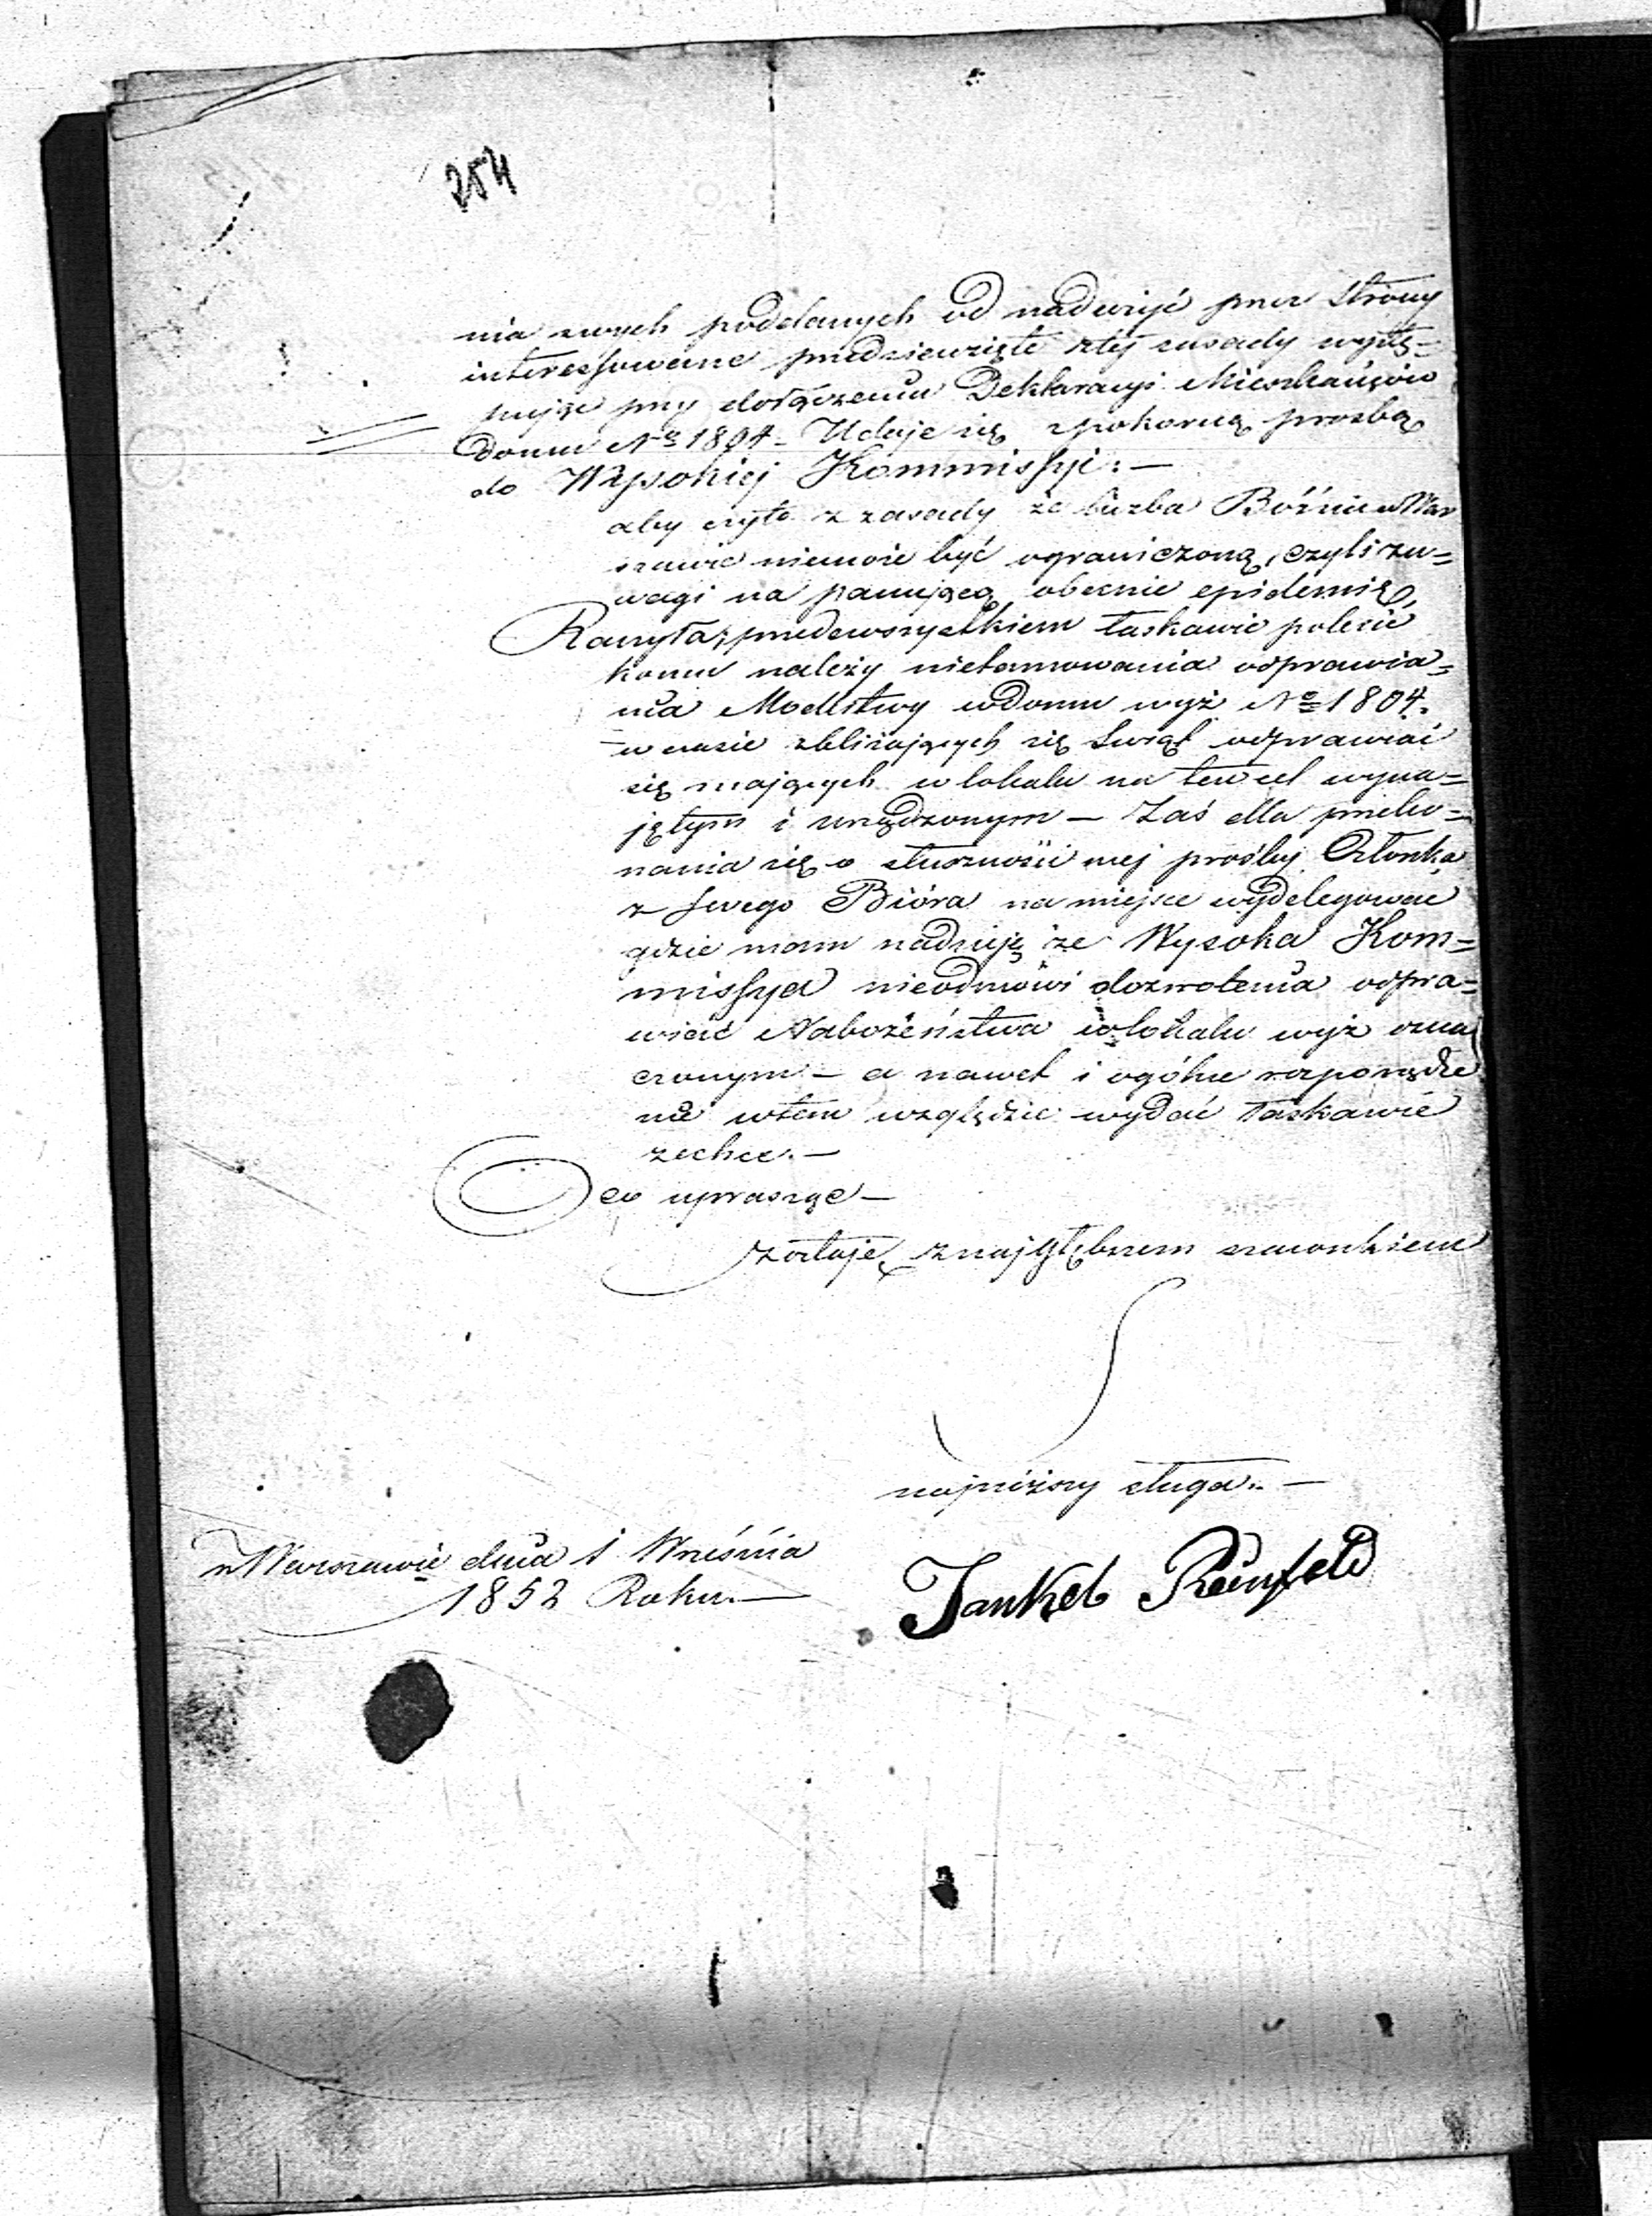 254
nia swych poddanych od nadużyć przez strony
interessowane przedsiewzięte z tej zasady wystę=
pując przy dołączeniu Deklaracyi Mieszkańców
Domu No 1804 – Udaje się z pokorną prosbą
do Wysokiej Kommissyi: –
aby czyto z zasady że liczba Bóżnic w War
szawie niemoże być ograniczoną, czyli zu=
wagi na panującą obecnie epidemię,
Raczyła, przedewszystkiem łaskawie polecić
komu należy nietamowania odprawia=
nia Modlitwy wdomu wyż No 1804.
w czasie zbliżających się Swiąt odprawiać
się mających w lokalu na ten cel wyna=
jętym i urządzonym – Zaś dla przeko=
nania się o słuszności mej prośby Członka
z swego Bióra na miejsce wydelegować
gdzie mam nadzieję że Wysoka Kom=
missya nieodmówi dozwolenia odpra=
wiać Nabożeństwa w lokalu wyż ozna
czonym – a nawet i ogólne rozporządze
nie wtem względzie wydać łaskawie
zechce. –
O co upraszając –
Zostaję z najgłębszem szacunkiem
najniższy sługa. –
w Warszawie dnia 1 Wrześnía
1852 Roku. –
Jankel Reinfeld